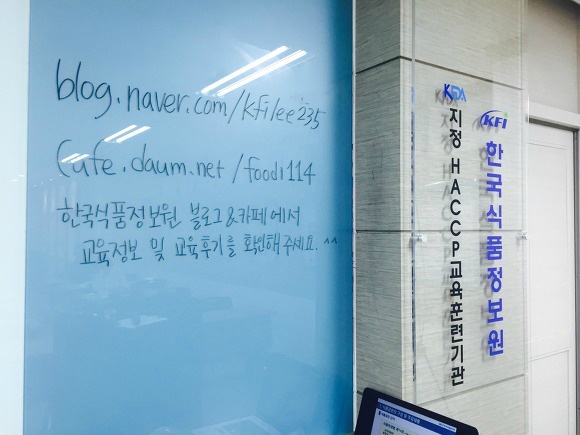 blog.naver.com/kfilee235
Cafe.daum.net/foodi114
한국식품정보원 블로그&카페에서
교육정보 및 교육후기를 확인해주세요.^^
KFDA
지정 HACCP교육훈련기관
KFi
한국식품정보원